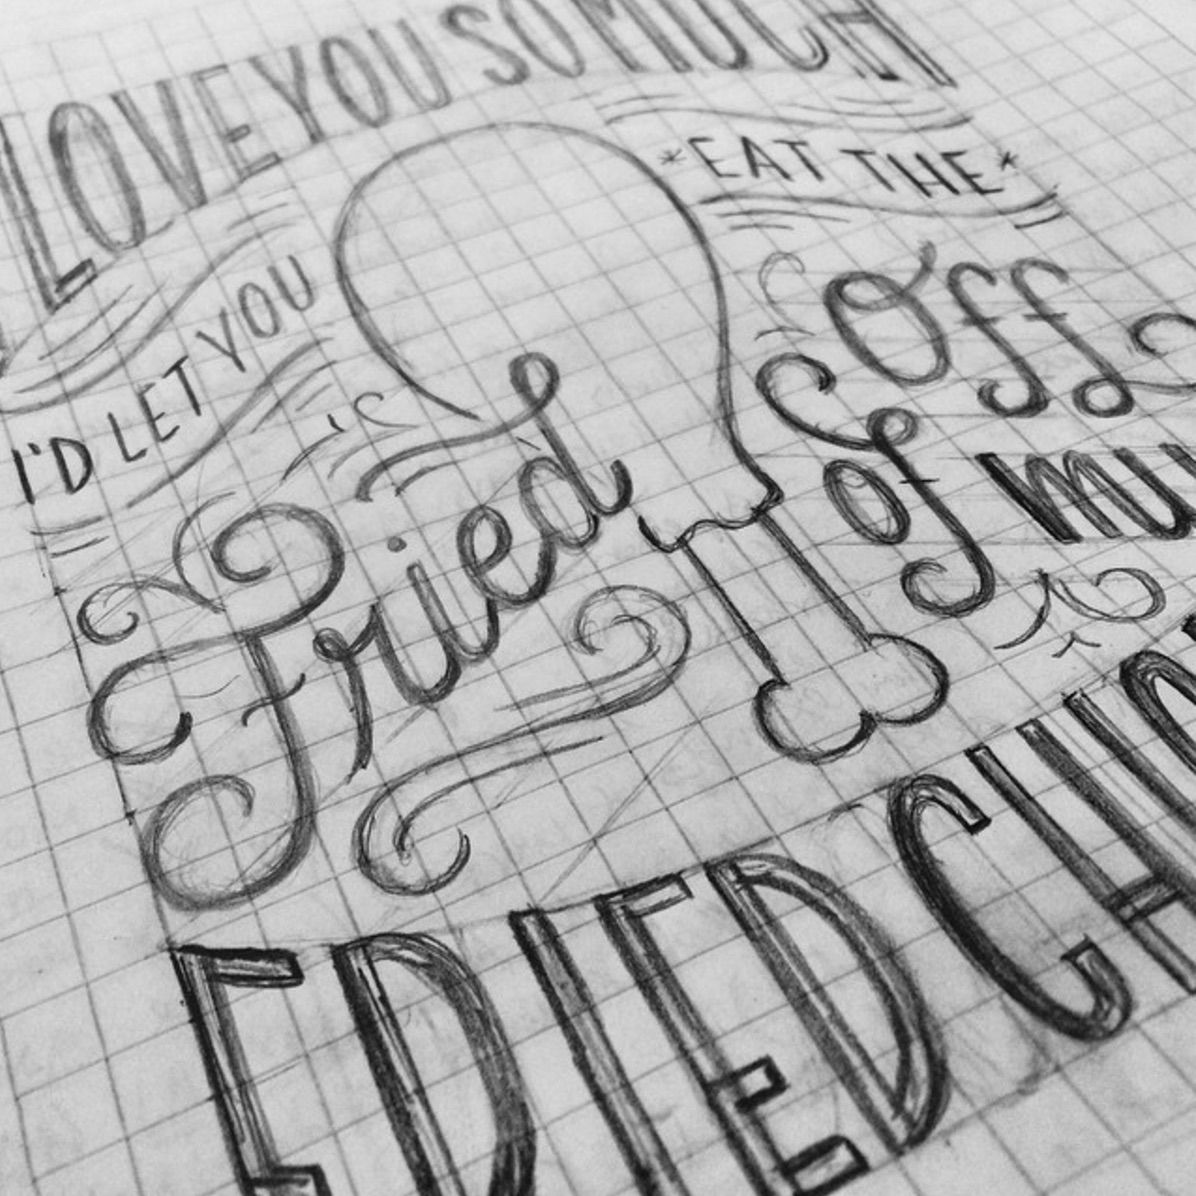 LOVE YOU SO MUCH
I'D LET YOU
*EAT THE*
Fried
Off
of mu
FRIED CHIC